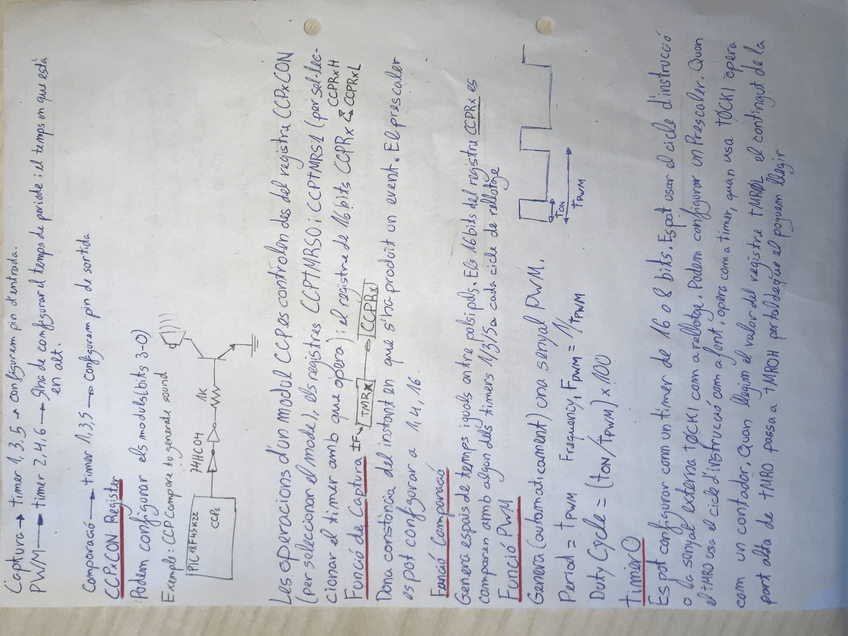 Captura → timer 1,3,5 → configurem pin d'entrada.
PWM → timer 2,4,6 → s'ha de configurar el temps de periode i el temps en que està
en alt.
Comparació → timer 1,3,5 → configurem pin de sortida
CCPxCON Register
Podem configurar els moduls (bits 3-0)
Exemple: CCP Compare to generate sound
PIC18F45K22
CCP1
74HC04
1K
Les operacions d'un modul CCP es controlen des del registra CCPxCON
(per seleccionar el mode), els registres CCPTMRS0 i CCPTMRS1 (per sel·lec-
cionar el timer amb que opera) i el registre de 16 bits CCPRx
CCPRxH
CCPRxL
Funció de Captura
TMRx → CCPRx
Dona constància del instant en que s'ha produit un event. El prescaler
es pot configurar a 1,4,16.
Funció Comparació
Genera espais de temps iguals entre polsi pols. Els 16 bits del registra CCPRx es
comparen amb algun dels timers 1/3/5 a cada cicle de rellotge
Funció PWM
Genera (automaticament) una senyal PWM.
Period = tPWM Frequency, FPWM = 1/tPWM
Duty Cycle = (tON/tPWM) x 100
tON
tPWM
Timer 0
Es pot configurar com un timer de 16 o 8 bits. Es pot usar el cicle d'instrucció
o la senyal externa TØCKI com a rellotge. Podem configurar un Prescaler. Quan
el TMR0 usa el cicle d'instrucció com a font, opera com a timer, quan usa TØCKI opera
com un contador. Quan llegim el valor del registre TMRØL el contingut de la
part alta de TMR0 passa a TMR0H per tal de que el poguem llegir